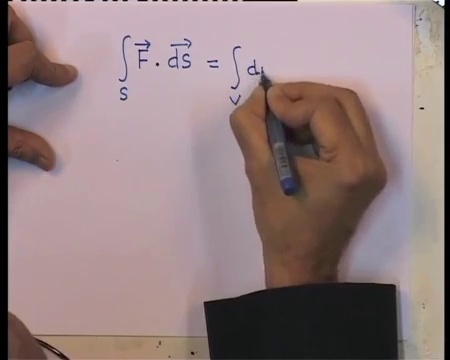 ∫_S F⃗ · d⃗S = ∫_V di